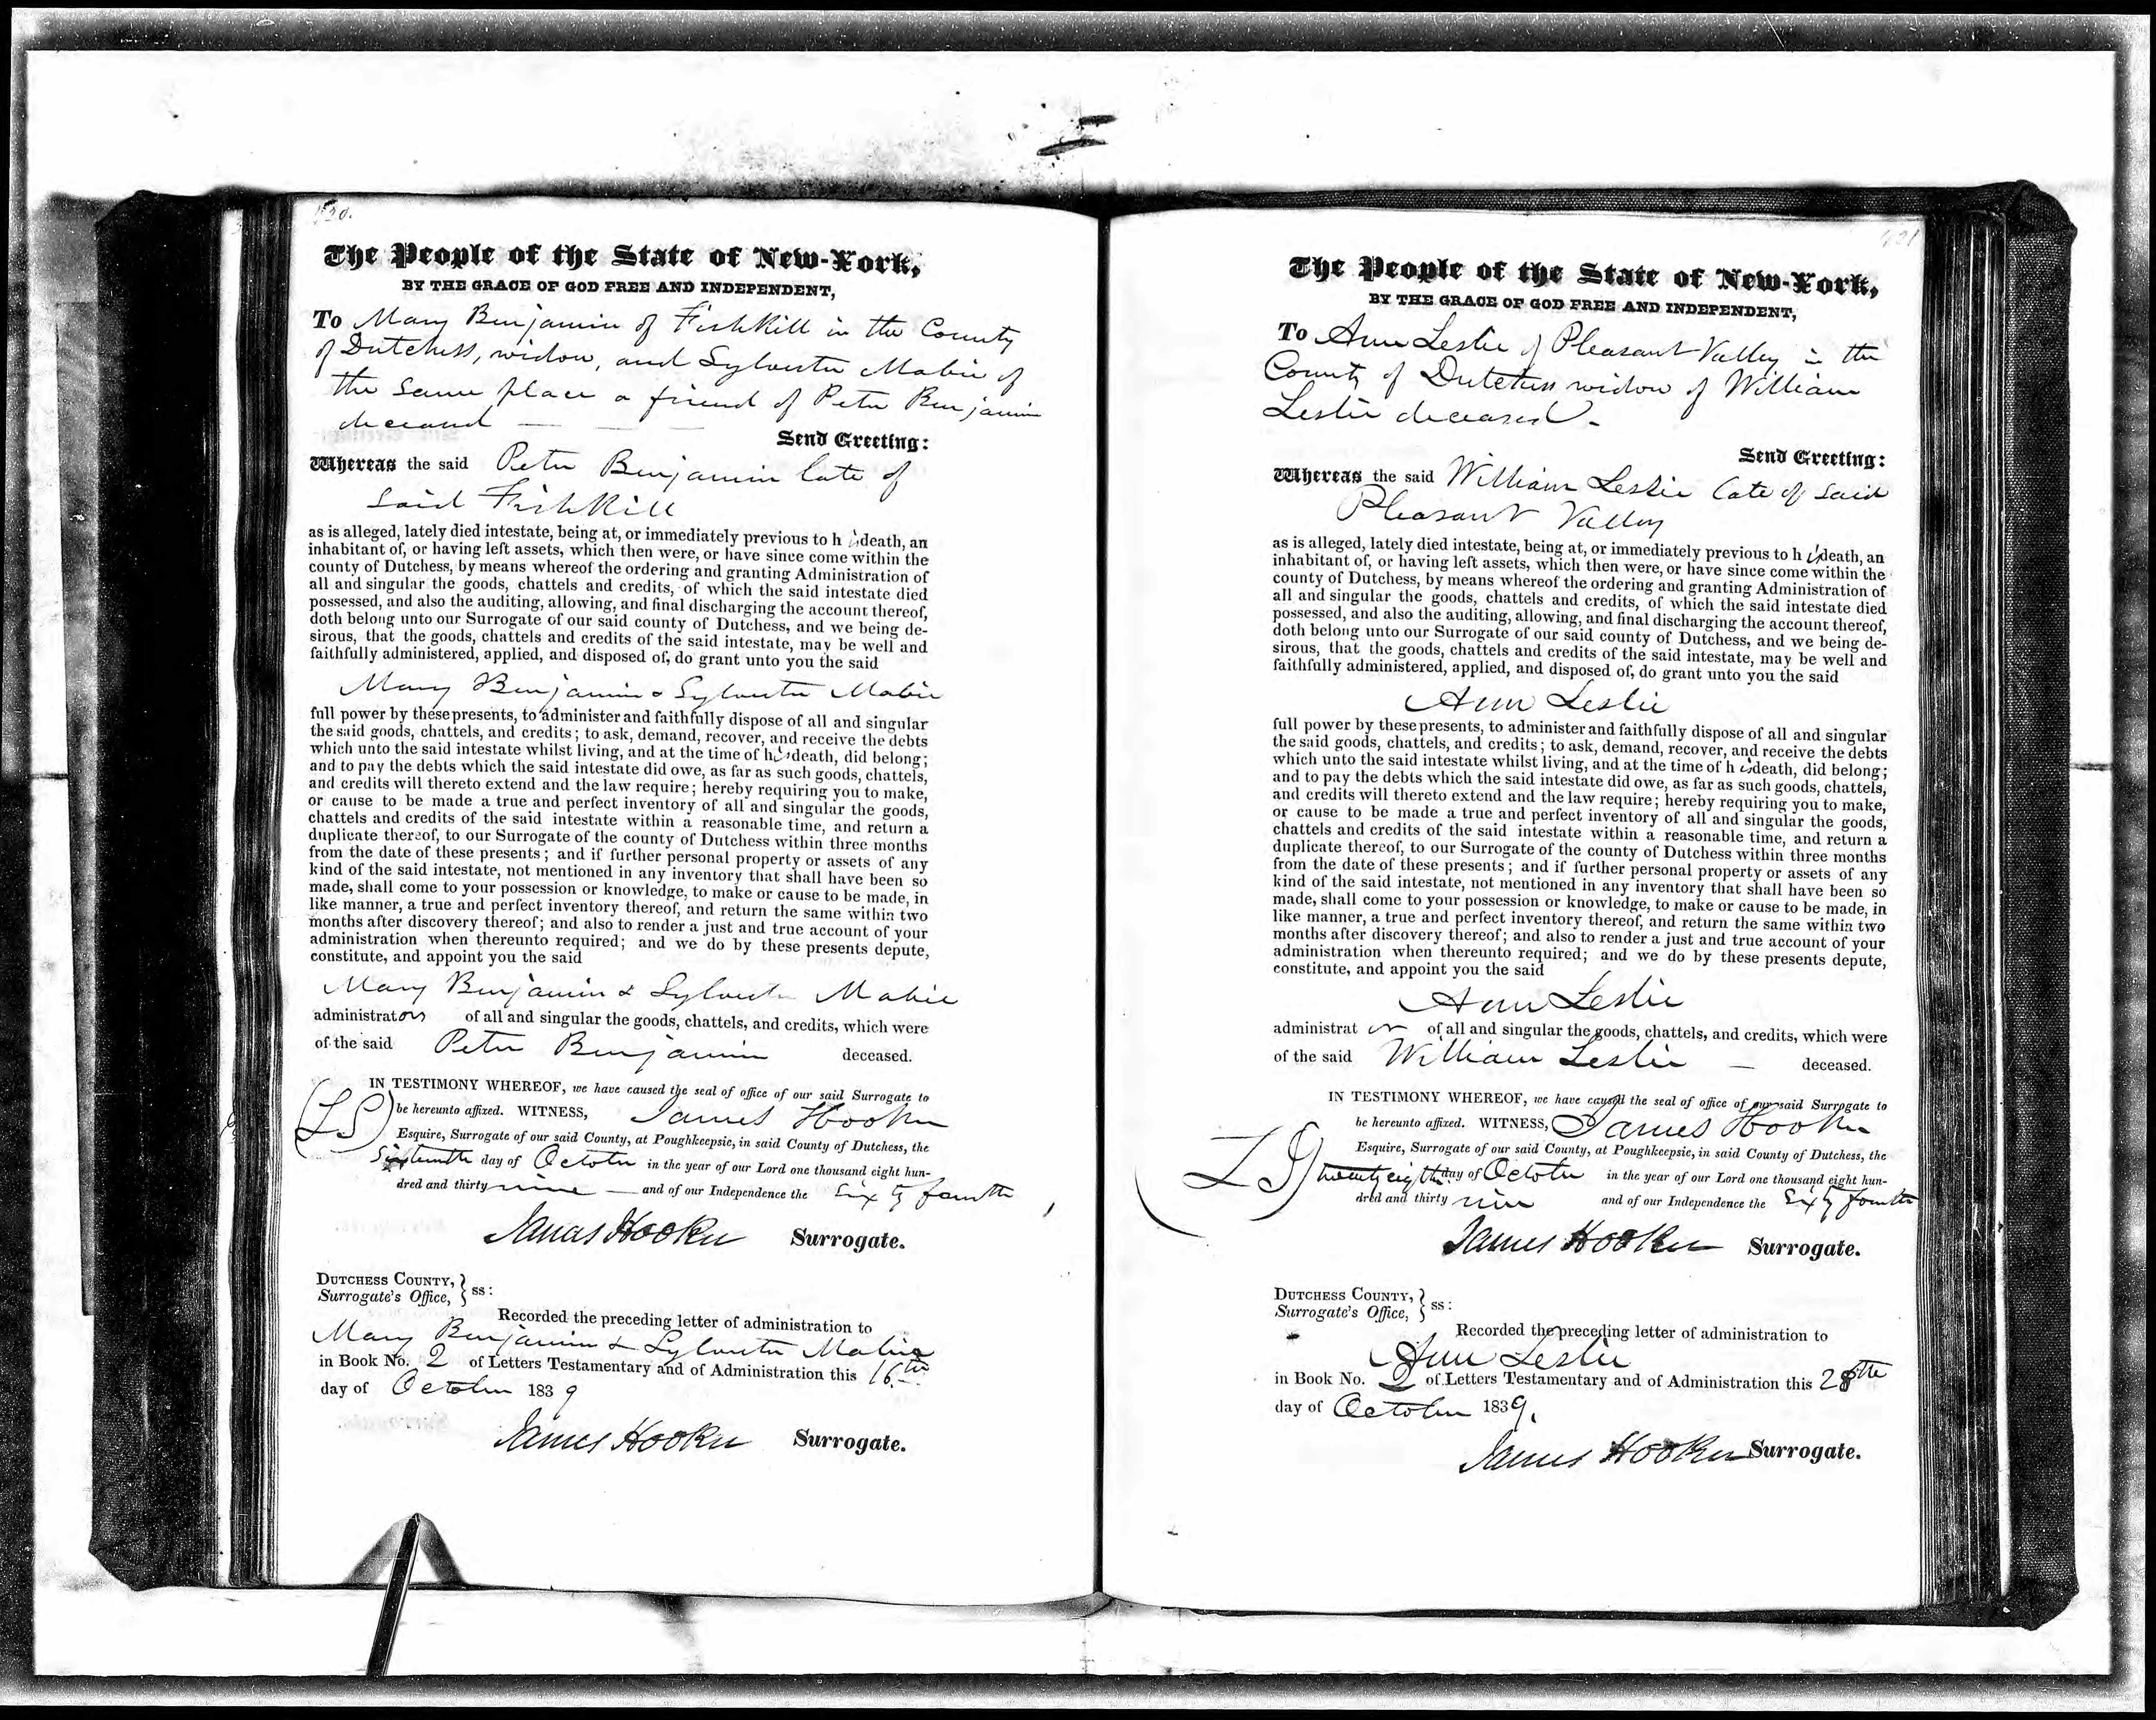 The People of the State of New-York,
BY THE GRACE OF GOD FREE AND INDEPENDENT,
To Mary Benjamin of Fishkill in the County
of Dutchess, widow, and Sylvester Mabie of
the same place a friend of Peter Benjamin
deceased
Send Greeting:
Whereas the said Peter Benjamin late of
said Fishkill
as is alleged, lately died intestate, being at, or immediately previous to his death, an
inhabitant of, or having left assets, which then were, or have since come within the
county of Dutchess, by means whereof the ordering and granting Administration of
all and singular the goods, chattels and credits, of which the said intestate died
possessed, and also the auditing, allowing, and final discharging the account thereof,
doth belong unto our Surrogate of our said county of Dutchess, and we being de-
sirous, that the goods, chattels and credits of the said intestate, may be well and
faithfully administered, applied, and disposed of, do grant unto you the said
Mary Benjamin & Sylvester Mabie
full power by these presents, to administer and faithfully dispose of all and singular
the said goods, chattels, and credits; to ask, demand, recover, and receive the debts
which unto the said intestate whilst living, and at the time of his death, did belong;
and to pay the debts which the said intestate did owe, as far as such goods, chattels,
and credits will thereto extend and the law require; hereby requiring you to make,
or cause to be made a true and perfect inventory of all and singular the goods,
chattels and credits of the said intestate within a reasonable time, and return a
duplicate thereof, to our Surrogate of the county of Dutchess within three months
from the date of these presents; and if further personal property or assets of any
kind of the said intestate, not mentioned in any inventory that shall have been so
made, shall come to your possession or knowledge, to make or cause to be made, in
like manner, a true and perfect inventory thereof, and return the same within two
months after discovery thereof; and also to render a just and true account of your
administration when thereunto required; and we do by these presents depute,
constitute, and appoint you the said
Mary Benjamin & Sylvester Mabie
administrators of all and singular the goods, chattels, and credits, which were
of the said Peter Benjamin deceased.
IN TESTIMONY WHEREOF, we have caused the seal of office of our said Surrogate to
(LS) be hereunto affixed. WITNESS, James Hooker
Esquire, Surrogate of our said County, at Poughkeepsie, in said County of Dutchess, the
Sixteenth day of October in the year of our Lord one thousand eight hun-
dred and thirty nine and of our Independence the Sixty fourth
James Hooker Surrogate.
DUTCHESS COUNTY, } ss:
Surrogate's Office,
Recorded the preceding letter of administration to
Mary Benjamin & Sylvester Mabie
in Book No. 2 of Letters Testamentary and of Administration this 16th
day of October 1839
James Hooker Surrogate.
The People of the State of New-York,
BY THE GRACE OF GOD FREE AND INDEPENDENT,
To Ann Leslie of Pleasant Valley in the
County of Dutchess widow of William
Leslie deceased.
Send Greeting:
Whereas the said William Leslie late of said
Pleasant Valley
as is alleged, lately died intestate, being at, or immediately previous to his death, an
inhabitant of, or having left assets, which then were, or have since come within the
county of Dutchess, by means whereof the ordering and granting Administration of
all and singular the goods, chattels and credits, of which the said intestate died
possessed, and also the auditing, allowing, and final discharging the account thereof,
doth belong unto our Surrogate of our said county of Dutchess, and we being de-
sirous, that the goods, chattels and credits of the said intestate, may be well and
faithfully administered, applied, and disposed of, do grant unto you the said
Ann Leslie
full power by these presents, to administer and faithfully dispose of all and singular
the said goods, chattels, and credits; to ask, demand, recover, and receive the debts
which unto the said intestate whilst living, and at the time of his death, did belong;
and to pay the debts which the said intestate did owe, as far as such goods, chattels,
and credits will thereto extend and the law require; hereby requiring you to make,
or cause to be made a true and perfect inventory of all and singular the goods,
chattels and credits of the said intestate within a reasonable time, and return a
duplicate thereof, to our Surrogate of the county of Dutchess within three months
from the date of these presents; and if further personal property or assets of any
kind of the said intestate, not mentioned in any inventory that shall have been so
made, shall come to your possession or knowledge, to make or cause to be made, in
like manner, a true and perfect inventory thereof, and return the same within two
months after discovery thereof; and also to render a just and true account of your
administration when thereunto required; and we do by these presents depute,
constitute, and appoint you the said
Ann Leslie
administrat or of all and singular the goods, chattels, and credits, which were
of the said William Leslie deceased.
IN TESTIMONY WHEREOF, we have caused the seal of office of our said Surrogate to
be hereunto affixed. WITNESS, James Hooker
Esquire, Surrogate of our said County, at Poughkeepsie, in said County of Dutchess, the
(LS) twenty eighth day of October in the year of our Lord one thousand eight hun-
dred and thirty nine and of our Independence the Sixty fourth
James Hooker Surrogate.
DUTCHESS COUNTY, } ss:
Surrogate's Office,
Recorded the preceding letter of administration to
Ann Leslie
in Book No. 2 of Letters Testamentary and of Administration this 28th
day of October 1839.
James Hooker Surrogate.